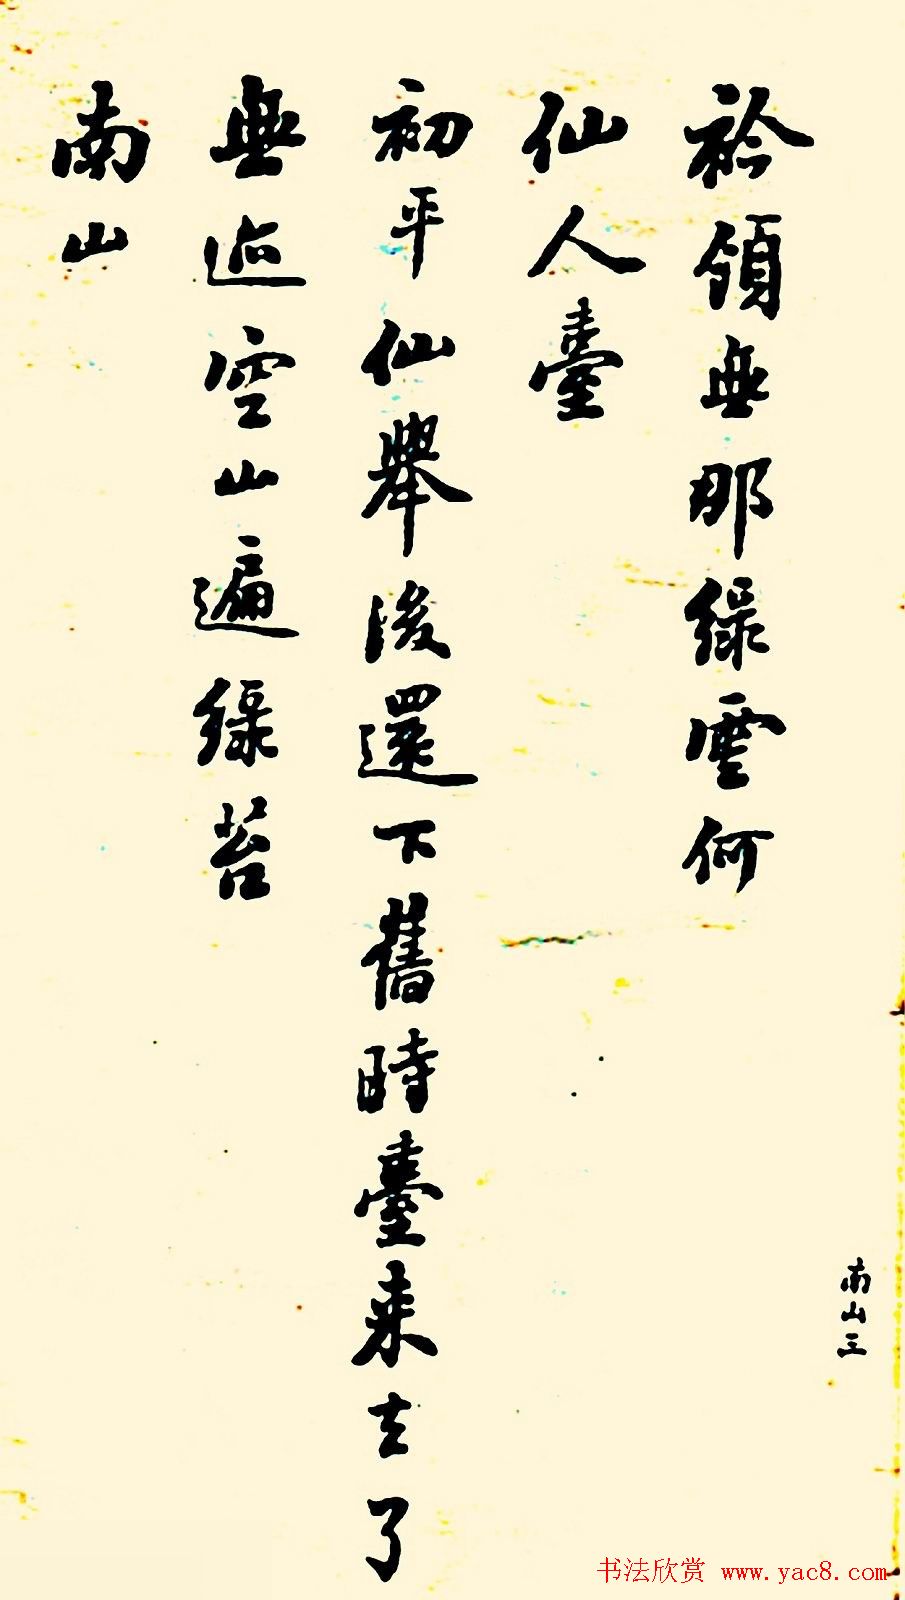 衿領無那綠雲何
仙人臺
初平仙舉後還下舊時臺来去了
無迹空山遍綠苔
南山
南山三
书法欣赏 www.yac8.com